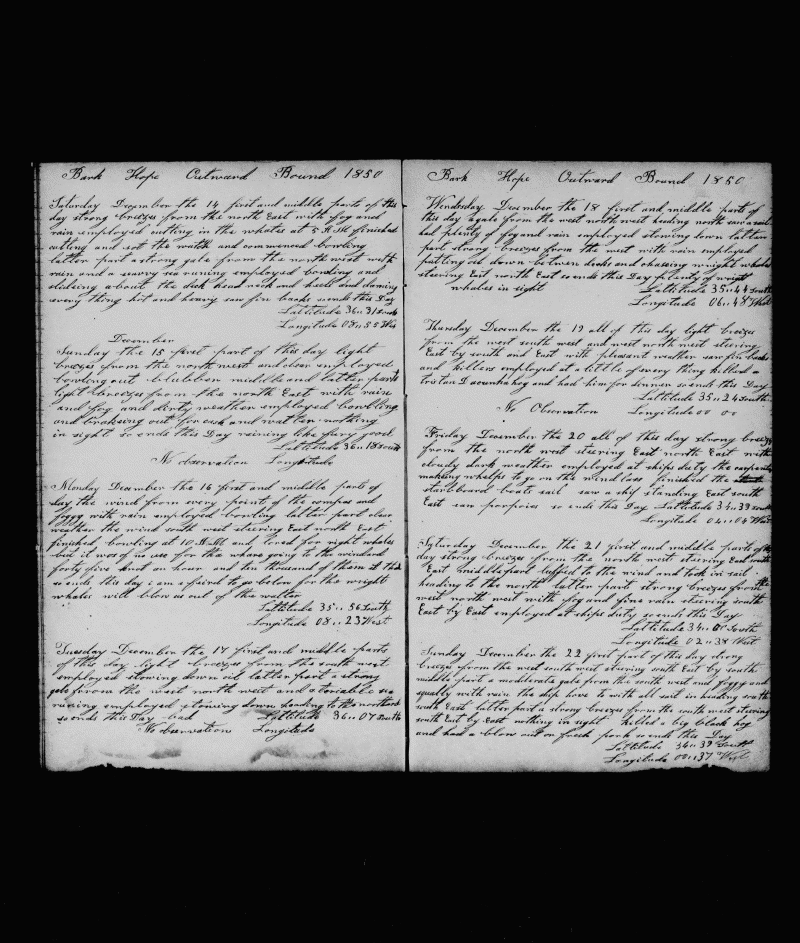 Bark Hope Outward Bound 1850
Saturday December the 14 first and middle parts of this
day strong breezes from the north East with fog and
rain employed cutting in the whales at 5 P.M finished
cutting and set the watch and commenced bowling
latter part strong gale from the north west with
rain and a heavy sea runing employed bowling and
slideing about the deck head neck and heels and daming
every thing hit and heavy saw fin backs so ends this Day
Lattitude 36 ,, 31 South
Longitude 08 ,, 55 Wes
December
Sunday the 15 first part of this day light
breezes from the north west and clear employed
bowling out blubber middle and latter parts
light breezes from the north East with rain
and fog and dirty weather employed bowling
and brakeing out for cask and watter nothing
in sight so ends this Day raining like fury good
Lattitude 36 ,, 18 South
No observation Longitude
Monday December the 16 first and middle parts of
day the wind from every point of the compas and
foggy with rain employed bowling latter part clear
weather the wind south west steering East north East
finished bowling at 10 A.M and lored for right whales
but it was of no use for tha whare going to the windard
forty five knot an hour and ten thousand of them at that
so ends this day i am afraid to go below for the wright
whales will blow us out of the watter
Lattitude 35 ,, 56 South
Longitude 08 ,, 23 West
Tuesday December the 17 first and middle parts
of this day light breezes from the south west
employed stowing down oil latter part a strong
gale from the west north west and a teriable sea
runing employed stowing down heading to the northard
so ends this Day bad Lattitude 36 ,, 07 South
No observation Longitude
Bark Hope Outward Bound 1850
Wendsday December the 18 first and middle parts of
this day a gale from the west north west heading north saw a sail
had plenty of fog and rain employed stowing down latter
part strong breezes from the west with rain employed
putting oil down betwen decks and chaseing wright whales
steering East north East so ends this Day plenty of wright
whales in sight Lattitude 35 ,, 44 South
Longitude 06 ,, 48 West
Thursday December the 19 all of this day light breezes
from the west south west and west north west steering
East by south and East with pleasant weather saw fin backs
and killers employed at a little of every thing killed a
tristan Dacunha hog and had him for dinner so ends this Day
Lattitude 35 ,, 24 South
No Observation Longitude 00 00
Friday December the 20 all of this day strong breezes
from the north west steering East north East with
cloudy dark weather employed at ships duty the carpenter
making whelps to go on the windlass finished the
starlboard boats sail saw a ship standing East south
East saw porpoies so ends this Day Lattitude 34 ,, 39 South
Longitude 04 ,, 04 West
Saturday December the 21 first and middle parts of this
day strong breezes from the north west steering East south
East middle part luffed to the wind and took in sail
heading to the north latter part strong breezes from the
west north west with fog and fine rain steering south
East by East employed at ships duty so ends this Day
Lattitude 34 ,, 00 South
Longitude 02 ,, 38 West
Sunday December the 22 first part of this day strong
breezes from the west south west steering south East by south
middle part a moditerate gale from the south west and foggy and
squally with rain the ship hove to with all sail in heading south
south East latter part a strong breezes from the south west steering
south East by East nothing in sight killed a big black hog
and had a blow out on fresh pork so ends this Day
Lattitude 34 ,, 39 South
Longitude 00 ,, 37 West